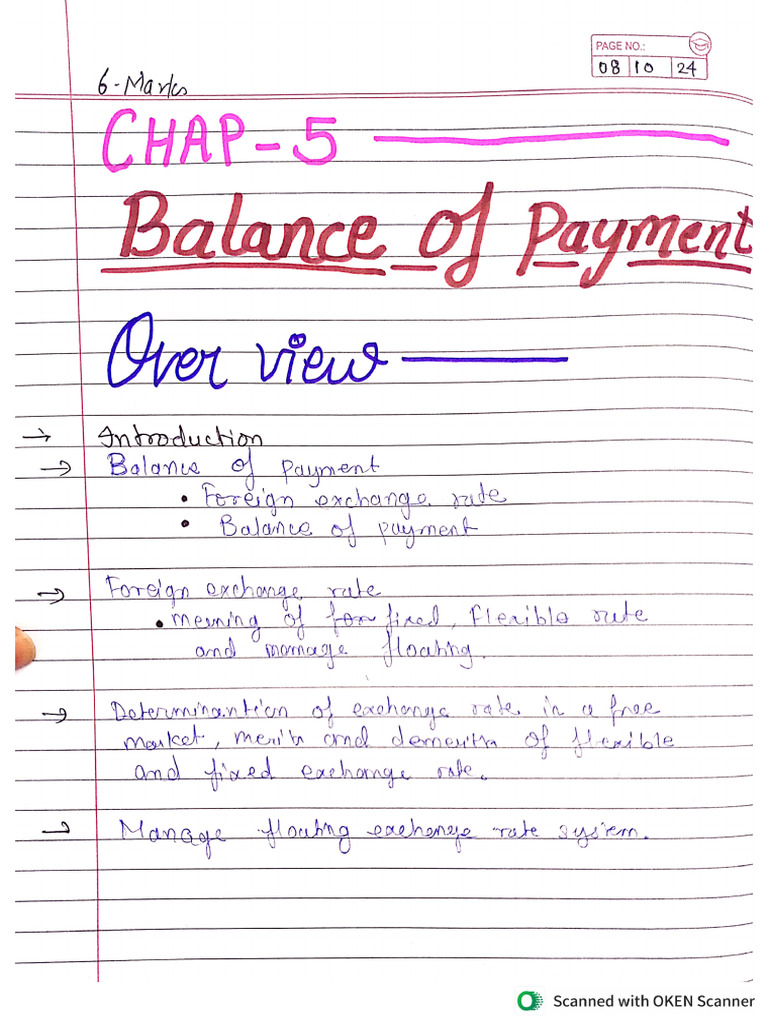 PAGE NO.:
08 10 24
6-Marks
CHAP-5
Balance of Payment
Over view
→ Introduction
→ Balance of payment
• Foreign exchange rate
• Balance of payment
→ Foreign exchange rate
• meaning of for fixed, flexible rate
and manage floating.
→ Determinantion of exchange rate in a free
market, merits and demerits of flexible
and fixed exchange rate.
→ Manage floating exchange rate system.
Scanned with OKEN Scanner